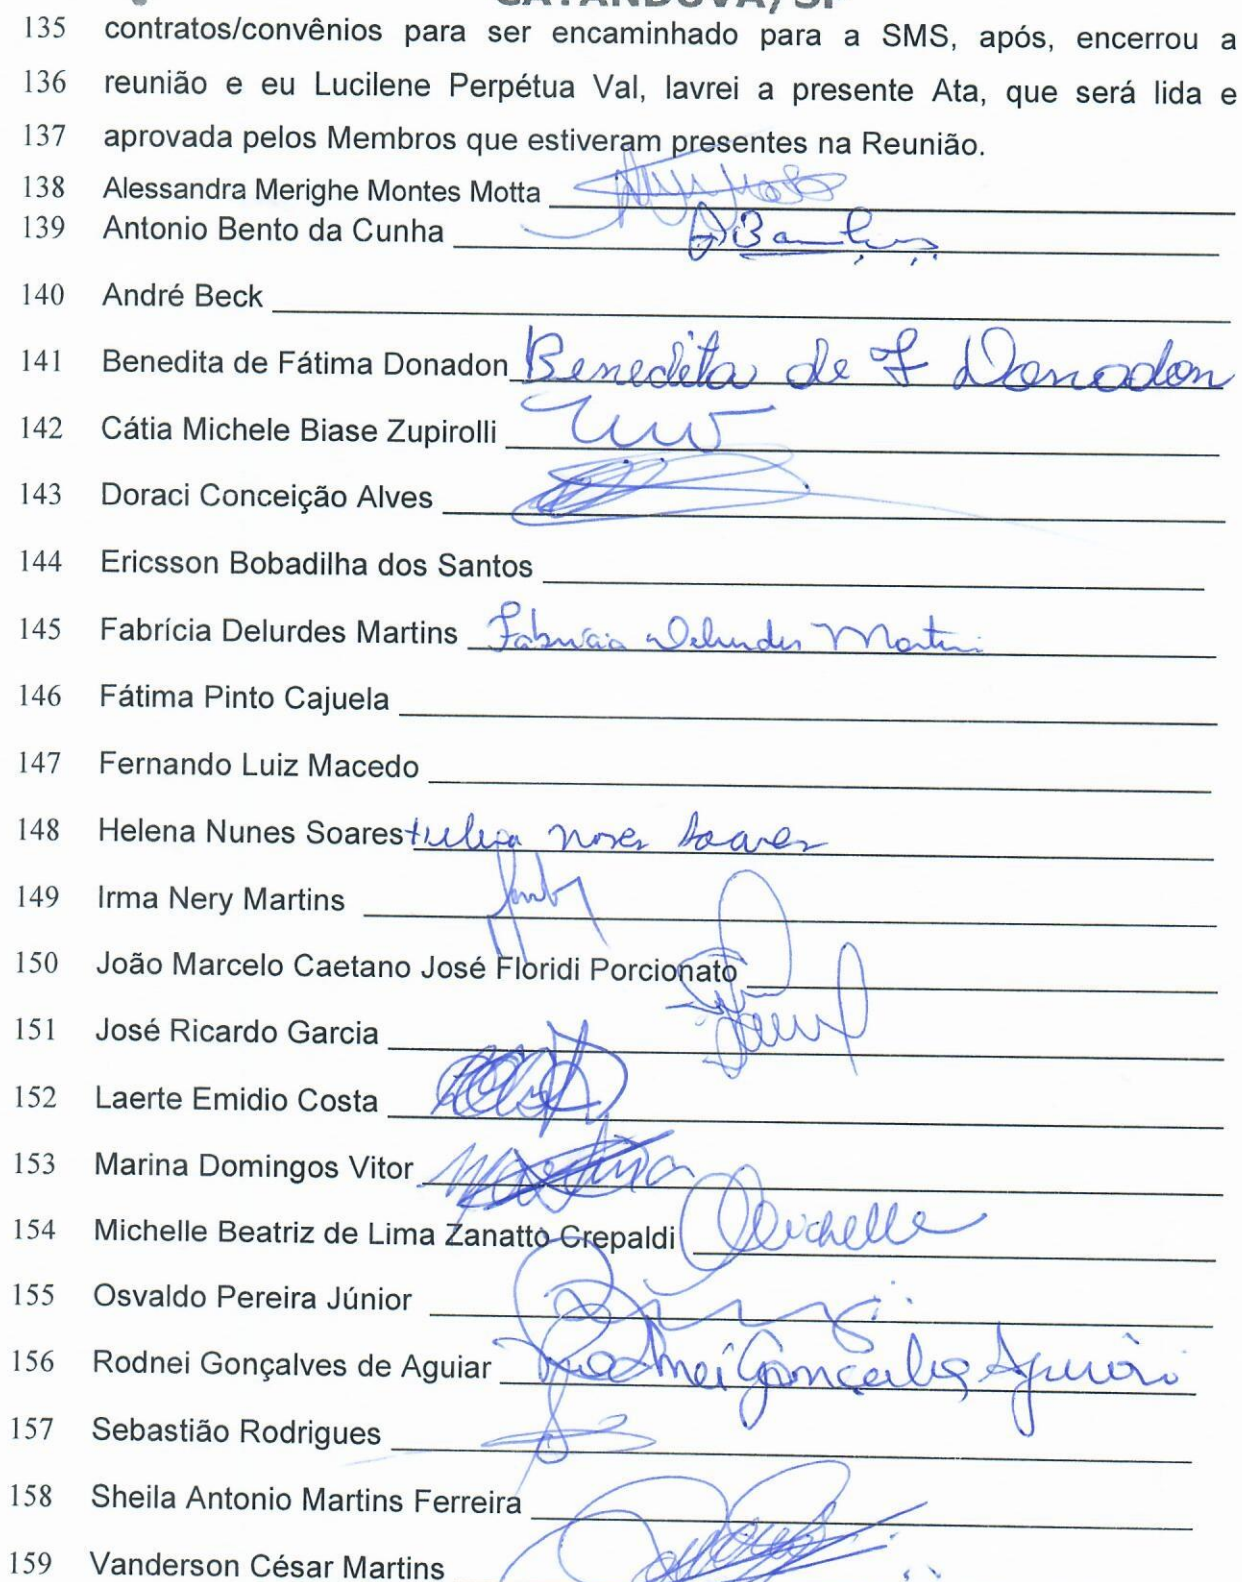 CATANDUVA, SP
135 contratos/convênios para ser encaminhado para a SMS, após, encerrou a
136 reunião e eu Lucilene Perpétua Val, lavrei a presente Ata, que será lida e
137 aprovada pelos Membros que estiveram presentes na Reunião.
138 Alessandra Merighe Montes Motta
139 Antonio Bento da Cunha
140 André Beck
141 Benedita de Fátima Donadon Benedita de F Donadon
142 Cátia Michele Biase Zupirolli
143 Doraci Conceição Alves
144 Ericsson Bobadilha dos Santos
145 Fabrícia Delurdes Martins Fabrícia Delurdes Martins
146 Fátima Pinto Cajuela
147 Fernando Luiz Macedo
148 Helena Nunes Soares Soares
149 Irma Nery Martins
150 João Marcelo Caetano José Floridi Porcionato
151 José Ricardo Garcia
152 Laerte Emidio Costa
153 Marina Domingos Vitor
154 Michelle Beatriz de Lima Zanatto Crepaldi Michelle
155 Osvaldo Pereira Júnior
156 Rodnei Gonçalves de Aguiar Rodnei Gonçalves Aguiar
157 Sebastião Rodrigues
158 Sheila Antonio Martins Ferreira
159 Vanderson César Martins